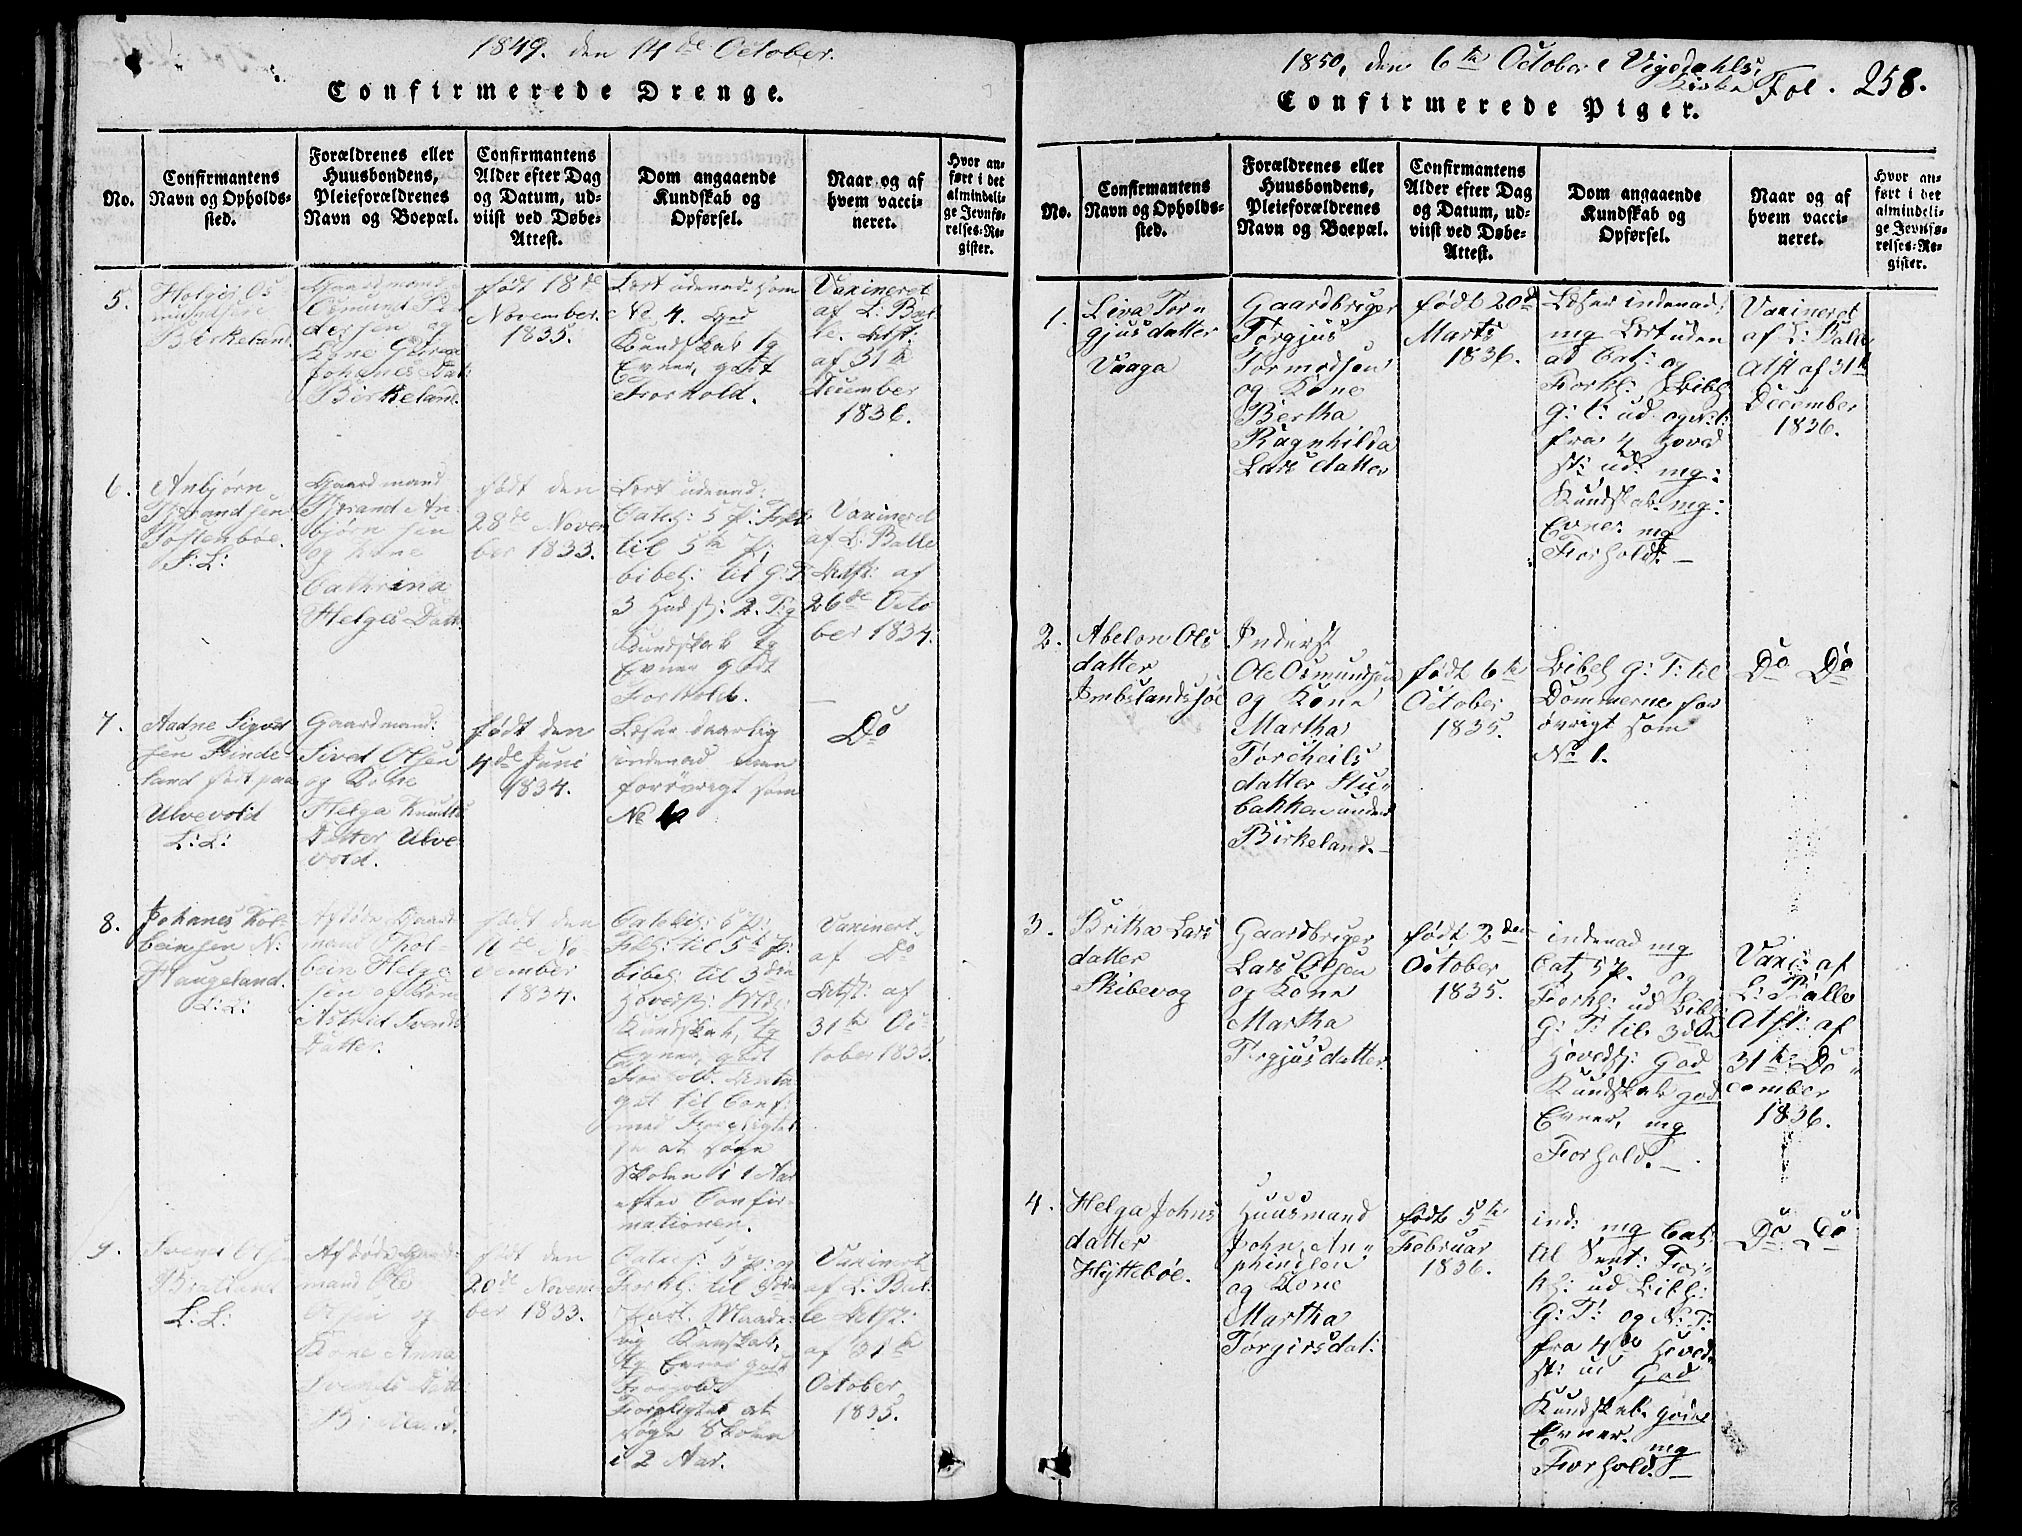 1849. den 14de October.
Confirmerede Drenge.
No.
Confirmantens
Navn og Opholds-
sted.
Forældrenes eller
Huusbondens,
Pleieforældrenes
Navn og Boepæl.
Confirmantens
Alder efter Dag
og Datum, ud-
viist ved Døbe-
Attest.
Dom angaaende
Kundskab og
Opførsel.
Naar og af
hvem vacci-
neret.
Hvor an-
ført i det
almindeli-
ge Jevnfø-
relses-Re-
gister.
5.
Birkeland.
Gaardmand
Osmund Pe
dersen og
Kone
Johanes Dat:
Birkeland.
født 18de
November.
1835.
Lært udenad: som
No 4. god
Kundskab tg
Evner, godt
Forhold.
Vaxineret
af L: Bal
le. Attst:
af 31te
December
1836.
6.
Anbjørn
Tostenboe.
S: L:
Gaardmand
Strand An-
bjørnsen
og Kone
Cathrina
Helges Datt:
født den
28de Novem
ber 1833.
Lært udenad:
Catech: 5 p: Forkl:
til 5te p:
bibelh: til G: T:
Kundskab tg
Evner godt
Forhold.
Vaxineret
af L: Balle
Attst: af
26de Octo
ber 1834.
7.
Aadne Sigvad
sen Hinde
land født paa
Ulvevold
L: L:
Gaardmand:
Sived Olsen
og Kone
Helga Knuds
Datter Ulve
vold.
født den
4de Juni
1834.
Læser daarlig
indenad men
forøvrigt som
No 6
Do
8.
Johanes Tol-
beinsen N:
Haugeland.
L: L:
Afdøde Gaard
mand Thol-
bein Helge
sen og Kone
Astrid Svends
Datter.
født den
16de No-
vember
1834.
Catech: 5 p:
Fkl: til 5te p:
bibelh: til 3die
Hovedst:
Kundskab, tg
Evner, godt
Forhold. Anta
get til Conf:
med Forpligtel
se at søge
Skolen i 1 Aar
efter Confir-
mationen.
Vaxinert.
af Do
Attst: af
31te Oc
tober 1835.
9.
L: L:
Afdøde Gaard-
mand Ole
Olsen og
Kone Anna
Svends Datt
født den
20de Novem
ber 1833.
Catech: 5 p: og
Forkl: til 3die
Part. Maade-
lig Kundskab,
tg Evner godt
Forhold.
Forpligtet at
søge Skolen
i 2 Aar.
Vaxineret
af L: Bal
le Attst:
af 31te
October
1835.
1850, den 6te October i Vigedahls
Kirke Fol. 258.
Confirmerede Piger.
No.
Confirmantens
Navn og Opholds-
sted.
Forældrenes eller
Huusbondens,
Pleieforældrenes
Navn og Boepæl.
Confirmantens
Alder efter Dag
og Datum, ud-
viist ved Døbe-
Attest.
Dom angaaende
Kundskab og
Opførsel.
Naar og af
hvem vacci-
neret.
Hvor an-
ført i det
almindeli-
ge Jevnfø-
relses-Re-
gister.
1.
Liva Tor
gjusdatter
Vaaga
Gaardbruger
Torgjus
Tormodsen
og Kone
Bertha
Ragnhilda
Larsdatter
født 20de
Marts
1836.
Læser indenad:
mg Lært uden
ad Cat: og
Forkl: Bibl
G: T: ud og N: T:
fra 4 Hoved
st: ud: mg:
Kundskab: mg:
Evner mg
Forhold. –
Vaxineret
af L: Balle
Atst af 31te
December
1836.
2.
Abelon Ols
datter
Imbslandssjøe
Inderst
Ole Osmundsen
og Kone
Martha
Torcheils
datter Stu-
bakken under
Birkeland. –
født 6te
October
1835.
Bibel G: T: til
Dommerne for
øvrigt som
No 1.
Do Do
3.
Britha Lars
datter
Skibevog
Gaardbruger
Lars Olsen
og Kone
Martha
Torgjusdatter
født 2den
October
1835.
indenad mg
Cat 5 p. og
Forkl: ud Bibl
G: T: til 3die
Hovedst: God
Kundskab god
Evner, mg
Forhold. –
Vaxi: af
L: Balle
Atst: af
31te De-
cember
1836.
4.
Helga Johns
datter
Hyttebøe.
Huusmand
John An-
phindsen
og Kone
Martha
Torgirsdat:
født 5te
Februar
1836.
ind: mg Cat:
til Sent: For-
kl: ud Bibl:
G: T: og N: T:
fra 4de Hoved
st: ud God
Kundskab. gode
Evner. mg
Forhold. –
Do Do